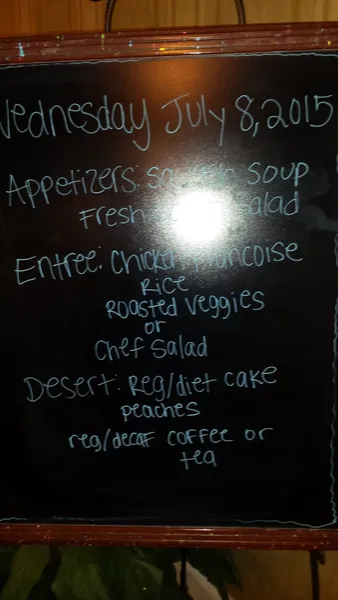 Wednesday July 8, 2015
Appetizers: Soup
Fresh Salad
Entree: Chicken Francoise
Rice
Roasted Veggies
or
Chef Salad
Desert: Reg/diet cake
peaches
reg/decaf coffee or
tea